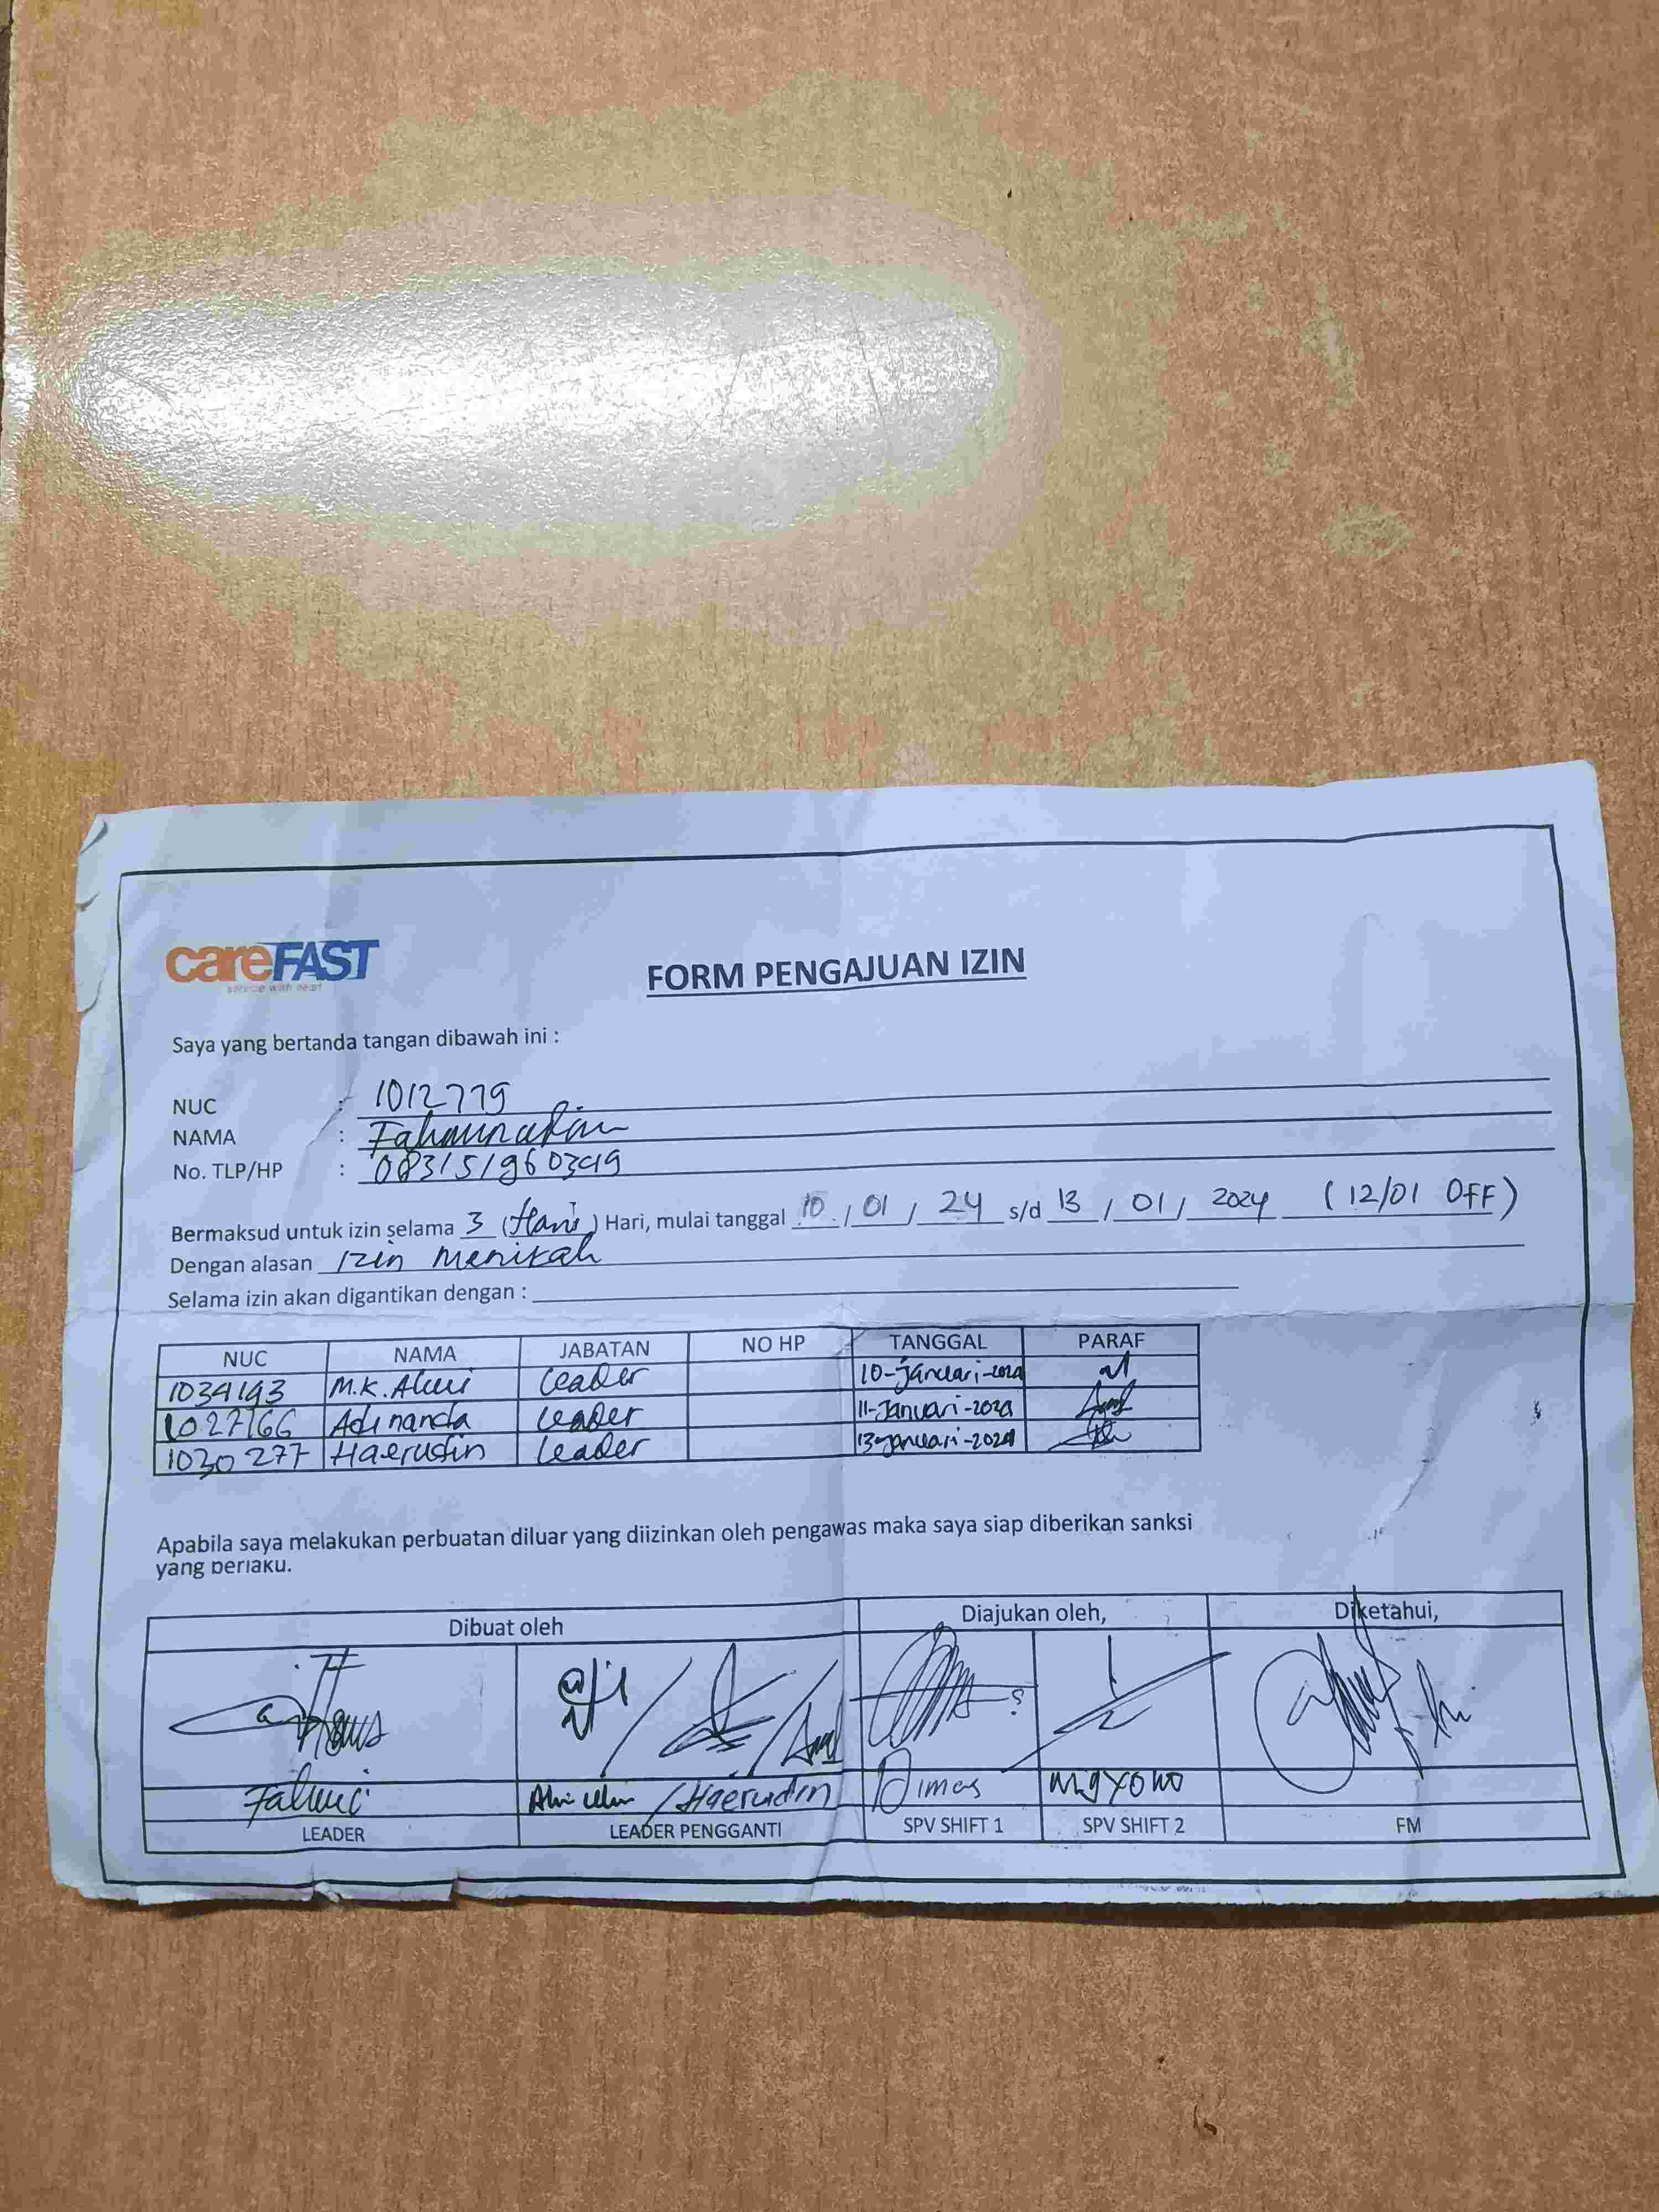 careFAST
service with heart
FORM PENGAJUAN IZIN
Saya yang bertanda tangan dibawah ini :
NUC : 1012779
NAMA :
No. TLP/HP : 083151960349
Bermaksud untuk izin selama 3 (Hari) Hari, mulai tanggal 10 / 01 / 24 s/d 13 / 01 / 2024 (12/01 OFF)
Dengan alasan Izin Menikah
Selama izin akan digantikan dengan :
NUC NAMA JABATAN NO HP TANGGAL PARAF
1034193 M.K. Alwi Leader 10-Januari-2024
1027166 Adinanda Leader 11-Januari-2024
1030277 Haerudin Leader 13-Januari-2024
Apabila saya melakukan perbuatan diluar yang diizinkan oleh pengawas maka saya siap diberikan sanksi
yang berlaku.
Dibuat oleh Diajukan oleh, Diketahui,
Fahmi / Haerudin Dimas
LEADER LEADER PENGGANTI SPV SHIFT 1 SPV SHIFT 2 FM